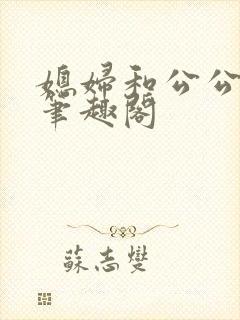 媳婦和公公
筆趣閣
蘇志燮